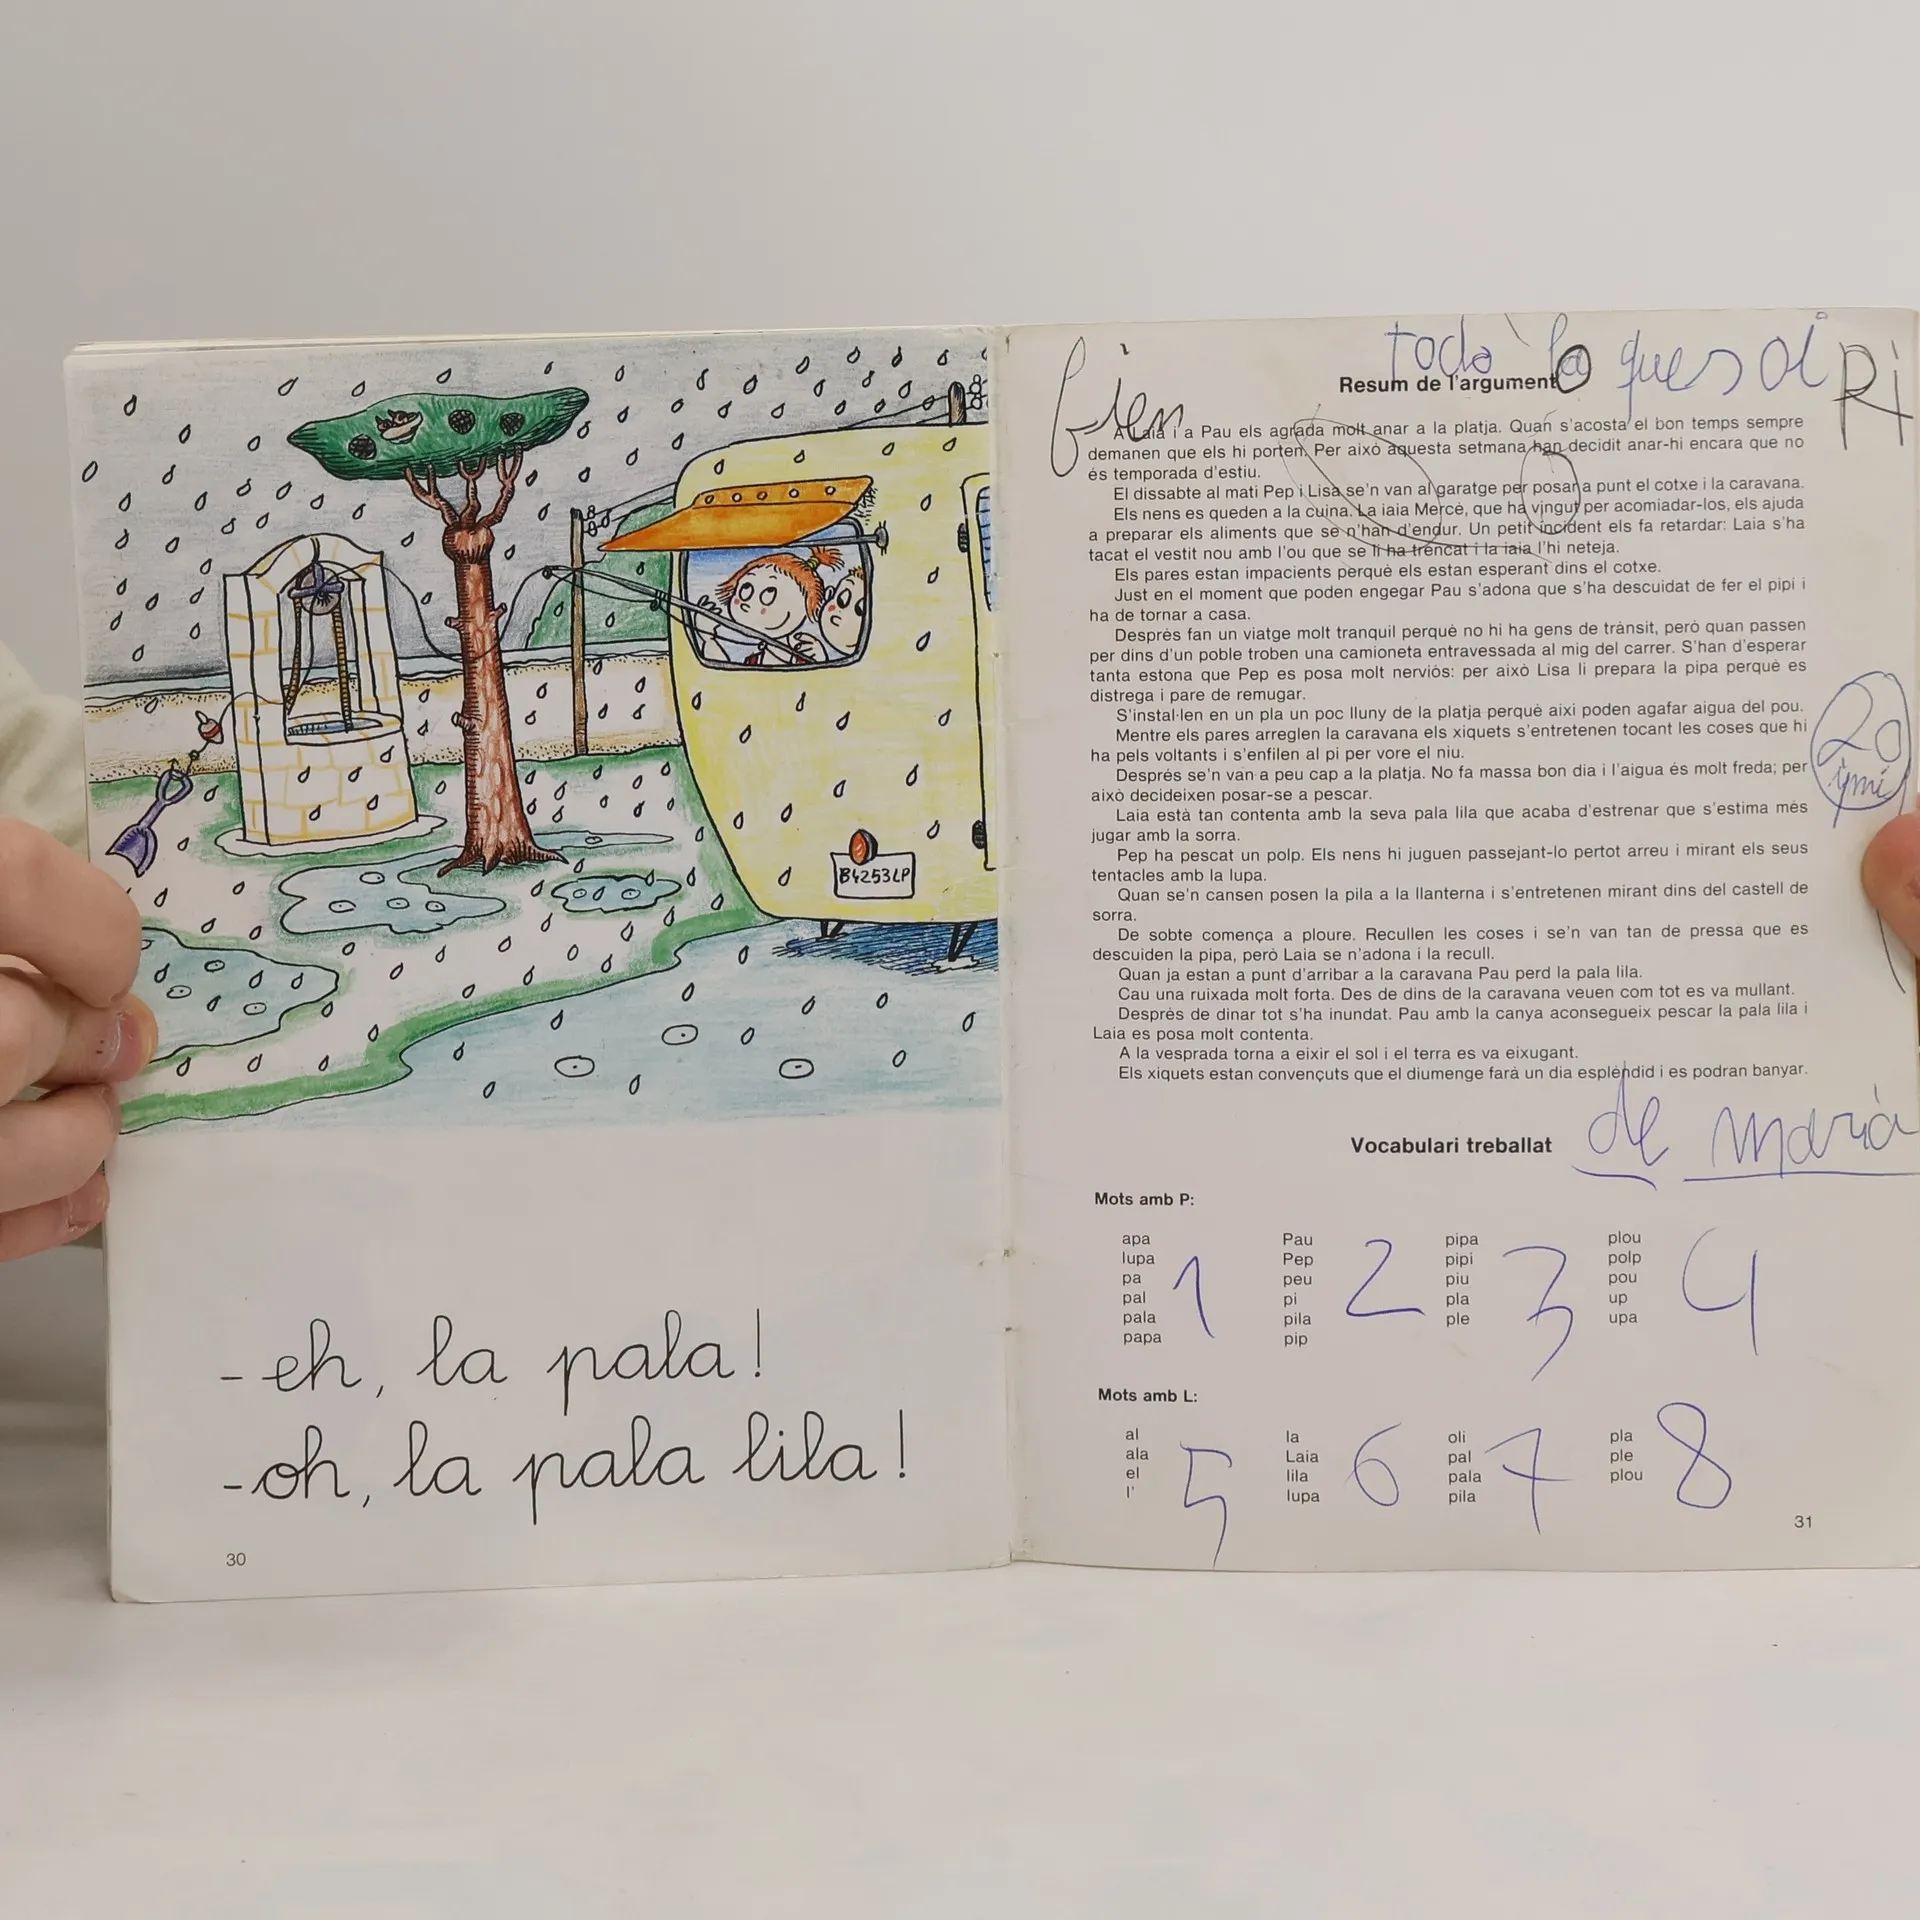 B4253LP
-eh, la pala!
-oh, la pala lila!
30
bien
Resum de l'argument
A Laia i a Pau els agrada molt anar a la platja. Quan s'acosta el bon temps sempre
demanen que els hi porten. Per això aquesta setmana han decidit anar-hi encara que no
és temporada d'estiu.
El dissabte al matí Pep i Lisa se'n van al garatge per posar a punt el cotxe i la caravana.
Els nens es queden a la cuina. La iaia Mercè, que ha vingut per acomiadar-los, els ajuda
a preparar els aliments que se n'han d'endur. Un petit incident els fa retardar: Laia s'ha
tacat el vestit nou amb l'ou que se li ha trencat i la iaia l'hi neteja.
Els pares estan impacients perquè els estan esperant dins el cotxe.
Just en el moment que poden engegar Pau s'adona que s'ha descuidat de fer el pipí i
ha de tornar a casa.
Després fan un viatge molt tranquil perquè no hi ha gens de trànsit, però quan passen
per dins d'un poble troben una camioneta entravessada al mig del carrer. S'han d'esperar
tanta estona que Pep es posa molt nerviós: per això Lisa li prepara la pipa perquè es
distrega i pare de remugar.
S'instal·len en un pla un poc lluny de la platja perquè així poden agafar aigua del pou.
Mentre els pares arreglen la caravana els xiquets s'entretenen tocant les coses que hi
ha pels voltants i s'enfilen al pi per vore el niu.
Després se'n van a peu cap a la platja. No fa massa bon dia i l'aigua és molt freda; per
això decideixen posar-se a pescar.
Laia està tan contenta amb la seva pala lila que acaba d'estrenar que s'estima més
jugar amb la sorra.
Pep ha pescat un polp. Els nens hi juguen passejant-lo pertot arreu i mirant els seus
tentacles amb la lupa.
Quan se'n cansen posen la pila a la llanterna i s'entretenen mirant dins del castell de
sorra.
De sobte comença a ploure. Recullen les coses i se'n van tan de pressa que es
descuiden la pipa, però Laia se n'adona i la recull.
Quan ja estan a punt d'arribar a la caravana Pau perd la pala lila.
Cau una ruixada molt forta. Des de dins de la caravana veuen com tot es va mullant.
Després de dinar tot s'ha inundat. Pau amb la canya aconsegueix pescar la pala lila i
Laia es posa molt contenta.
A la vesprada torna a eixir el sol i el terra es va eixugant.
Els xiquets estan convençuts que el diumenge farà un dia esplèndid i es podran banyar.
20
de maria
Vocabulari treballat
Mots amb P:
apa Pau pipa plou
lupa Pep pipi polp
pa peu piu pou
pal pi pla up
pala pila ple upa
papa pip
1 2 3 4
Mots amb L:
al la oli pla
ala Laia pal ple
el lila pala plou
l' lupa pila
5 6 7 8
31